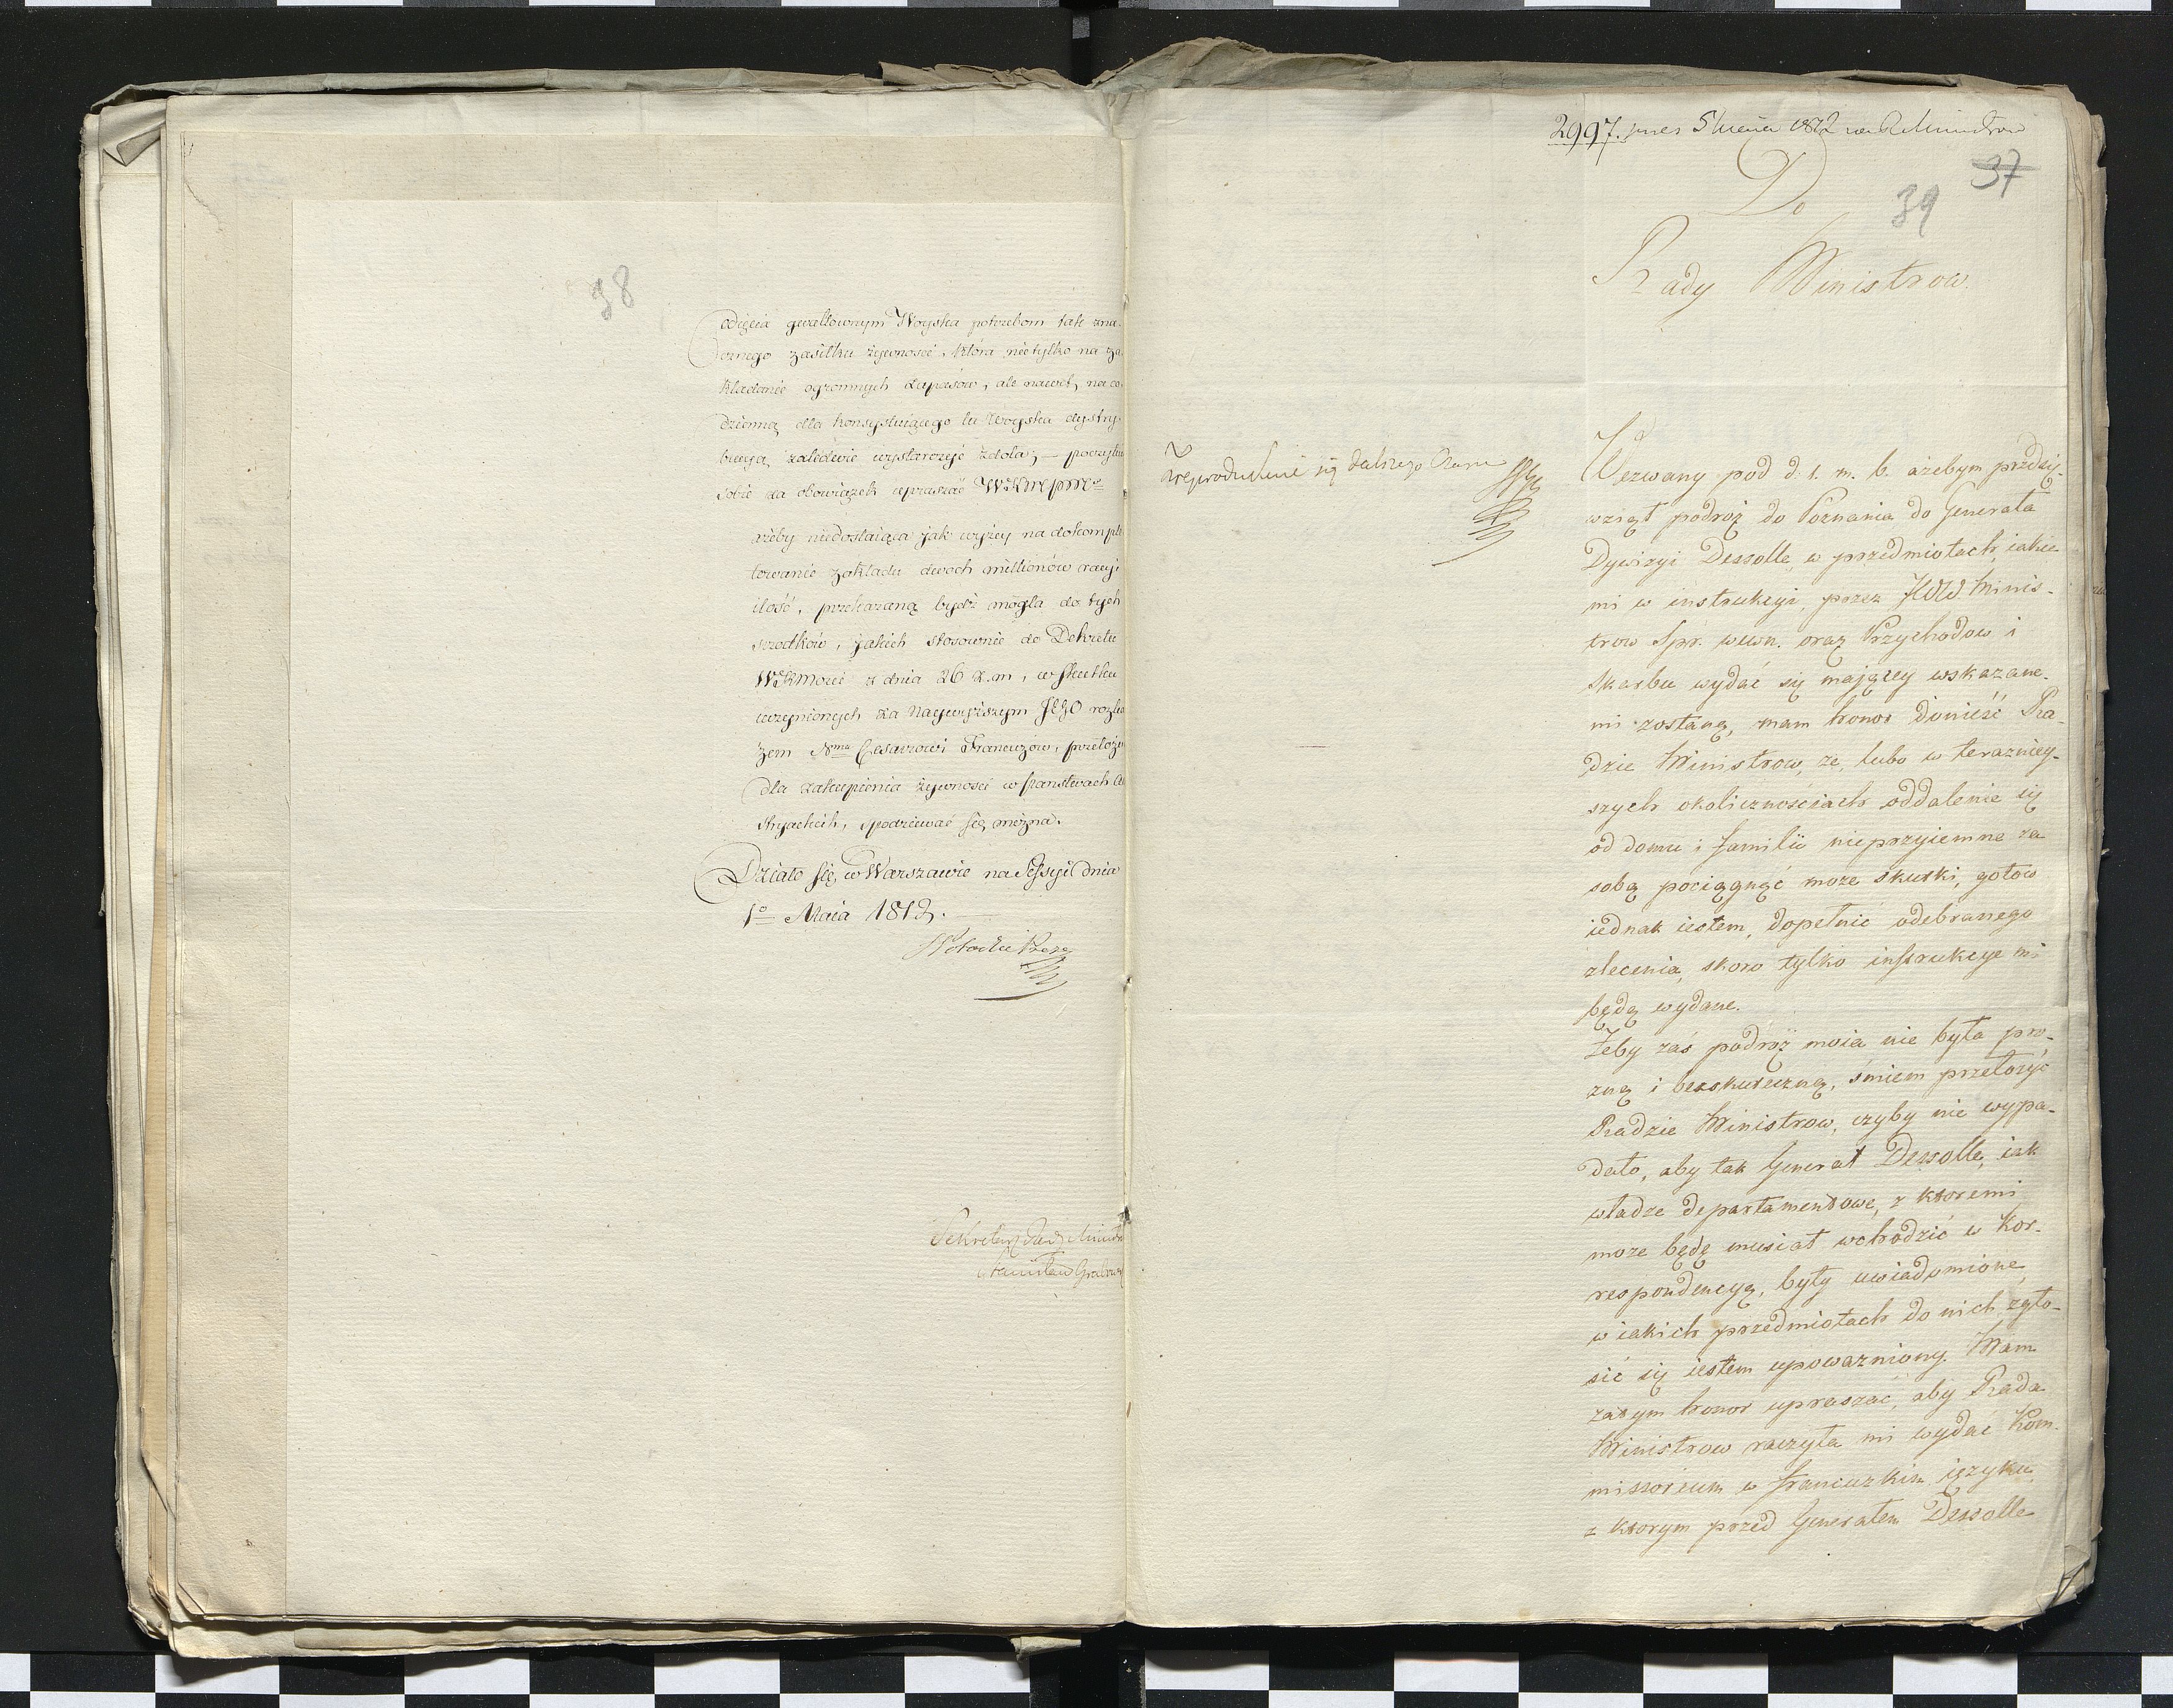 38
odięcia gwałtownym Woyska potrzebom tak zna-
cznego zasiłku żywności, która nietylko na za
kładanie ogromnych zapasów, ale nawet, na co
dzienną dla konsystuiącego tu Woyska dystry-
bucyą zaledwie wystarczyć zdoła; — poczytu
sobie za obowiązek upraszać
ażeby niedostaiąca jak wyżey na dokomple
towanie zakładu dwoch millionów racyi
ilość, przekazaną bydź mogła do tych
srodków, jakich stosownie do Dekretu
WKMości z dnia 26 z. m, w skutku
uczynionych za Naywyższym JEGO rozka
zem Nmu Cesarzowi Francuzow, przełoże
dla zakupienia żywności w państwach Au
stryackich, spodziewać się można.
Działo się w Warszawie na Sessyi dnia
1o Maia 1812.
Sekretarz Rady Ministr
Stanisław Grabows
2997. 5 1812 Ministrow
37
39
Do
Rady Ministrow.
się dalszego
Wezwany pod d. 1. m. b. ażebym przedsię-
wziął podroż do Poznania do Generała
Dywizyi Dessolle, w przedmiotach, iakie
mi w instrukcyi, przez JWW Minis-
trow Spr. wewn. oraz Przychodow i
Skarbu wydać się maiącey wskazane-
mi zostaną, mam honor donieść Ra-
dzie Ministrow, że, lubo w teraźniey-
szych okolicznościach oddalenie się
od domu i familii nieprzyiemne za
sobą pociągnąć może skutki, gotow
iednak iestem, dopełnić odebranego
zlecenia, skoro tylko instrukcye mi
będą wydane.
Żeby zaś podróż moia nie była pró-
zną i bezskuteczną, śmiem przełożyć
Radzie Ministrow, czyby nie wypa-
dało, aby tak Generał Dessolle, iak
władze departamentowe, z ktoremi
może będę musiał wchodzić w kor-
respondencyą, były uwiadomione,
w iakich przedmiotach do nich zgło-
sić się iestem upoważniony. Mam
zatym honor upraszać, aby Rada
Ministrow raczyła mi wydać Kom-
missorium w francuzkim ięzyku
z ktorym przed Generałem Dessolle